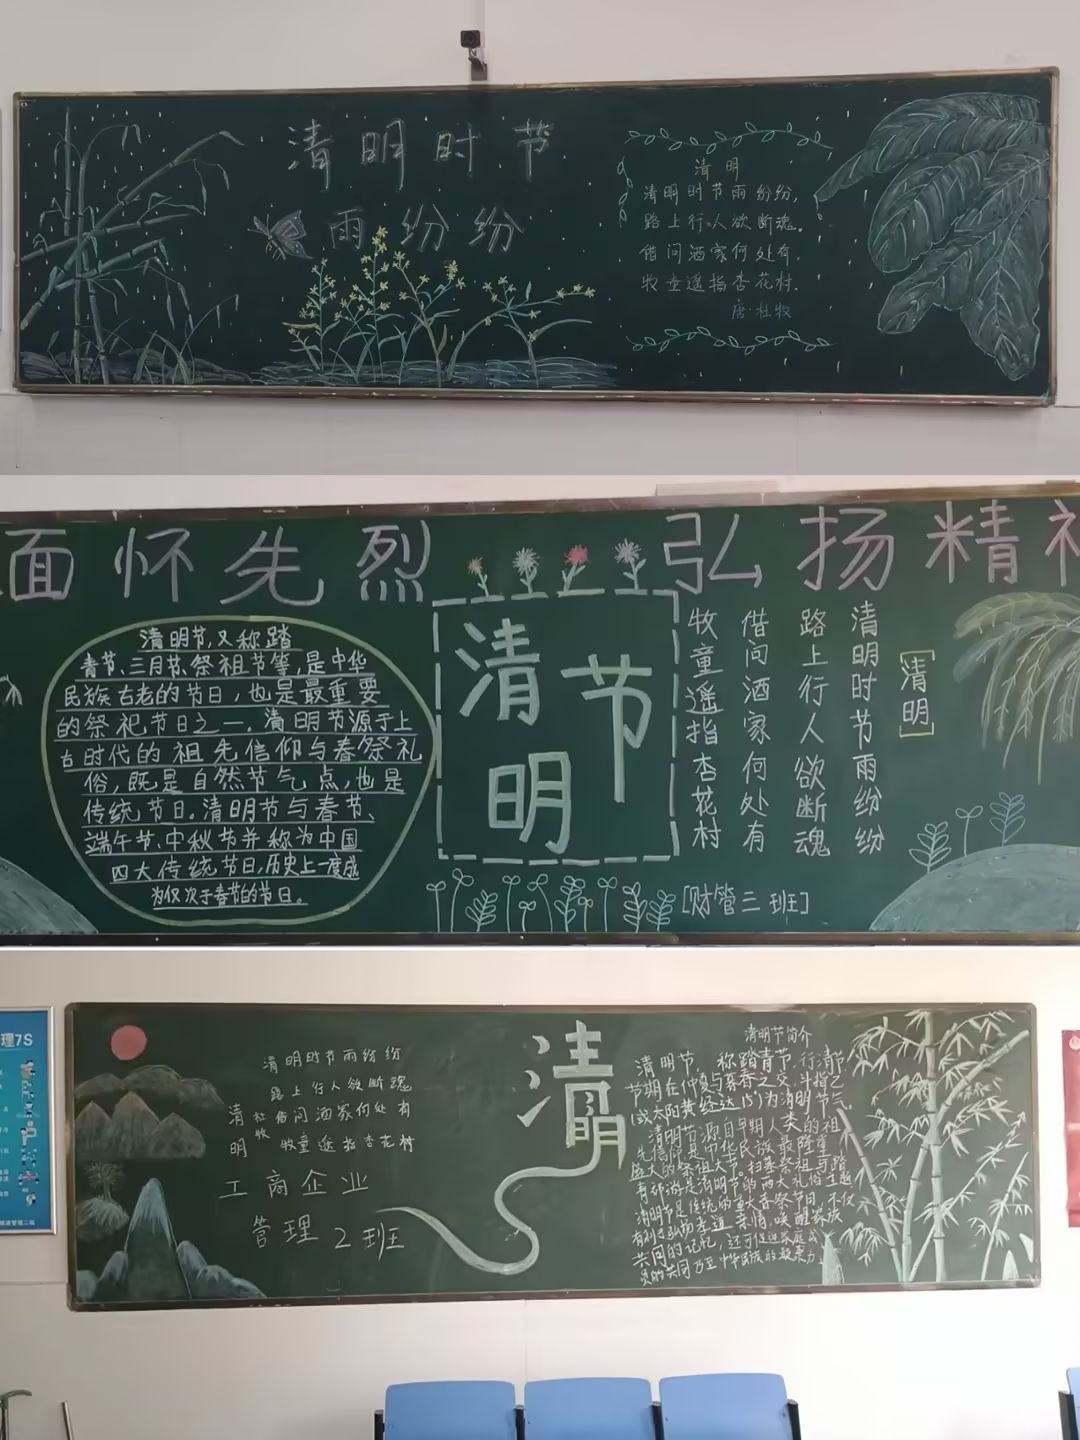 清明时节
雨纷纷
清明
清明时节雨纷纷,
路上行人欲断魂。
借问酒家何处有,
牧童遥指杏花村.
唐·杜牧
面怀先烈
弘扬精
清明节,又称踏
青节、三月节、祭祖节等,是中华
民族古老的节日,也是最重要
的祭祀节日之一.清明节源于上
古时代的祖先信仰与春祭礼
俗,既是自然节气点,也是
传统节日。清明节与春节、
端午节、中秋节并称为中国
四大传统节日,历史上一度成
为仅次于春节的节日。
清
明
节
[清明]
清明时节雨纷纷
路上行人欲断魂
借问酒家何处有
牧童遥指杏花村
[财管三班]
理7S
清明时节雨纷纷
路上行人欲断魂
借问酒家何处有
牧童遥指杏花村
清明
杜牧
工商企业
管理2班
清明
清明节简介
清明节,称踏青节、行清节
节期在仲春与暮春之交,斗指乙
(或太阳黄经达15°)为清明节气
清明节源自早期人类的祖
先信仰是中华民族最隆重
盛大的祭祖大节,扫墓祭祖与踏
青郊游是清明节的两大礼俗主题
清明节是传统的重大春祭节日,不仅
有利于弘扬孝道亲情、唤醒家族
共同的记忆,还可促进家庭成
员的共同乃至中华民族的凝聚力